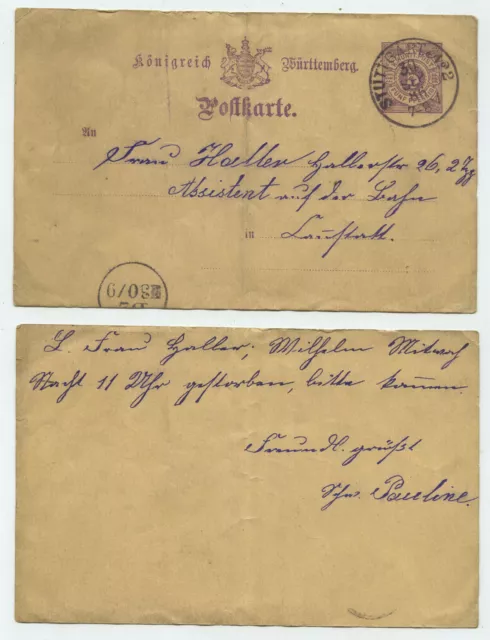 Königreich Württemberg.
STUTTGART
Postkarte.
An
Frau Haller Hallerstr 26, 2
Assistent auf der Bahn
in Cannstatt.
30/9
L. Frau Haller, Wilhelm Mitwoch
Nacht 11 Uhr gestorben, bitte kommen.
Freundl. grüßt
Schw. Pauline.